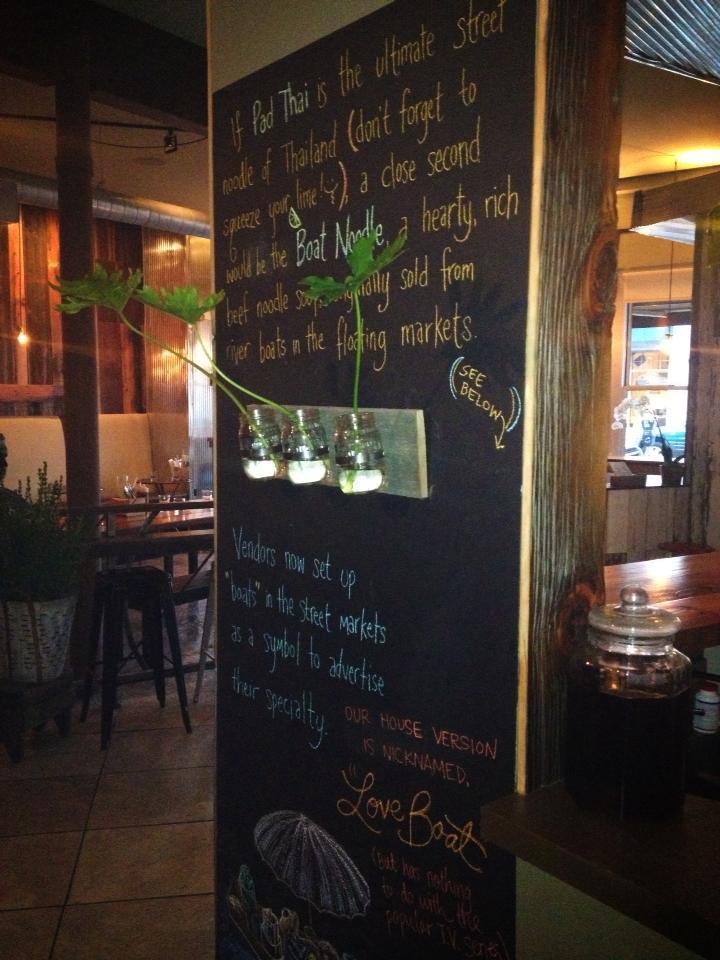 If Pad Thai is the ultimate street
noodle of Thailand (don't forget to
squeeze your lime!), a close second
would be the Boat Noodle, a hearty, rich
beef noodle soup originally sold from
river boats in the floating markets.
(SEE
BELOW)
Vendors now set up
"boats" in the street markets
as a symbol to advertise
their specialty.
OUR HOUSE VERSION
IS NICKNAMED,
"Love Boat"
(but has nothing
to do with the
popular T.V. series)